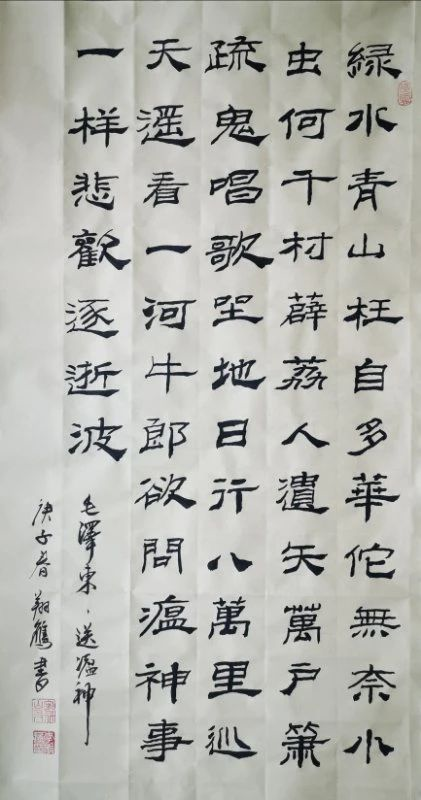 緑水青山枉自多華佗無奈小
虫何千村薜荔人遺矢萬户箫
疏鬼唱歌坐地日行八萬里巡
天遥看一河牛郎欲問瘟神事
一样悲歡逐逝波
毛澤東、送瘟神
庚子春翔鷹書